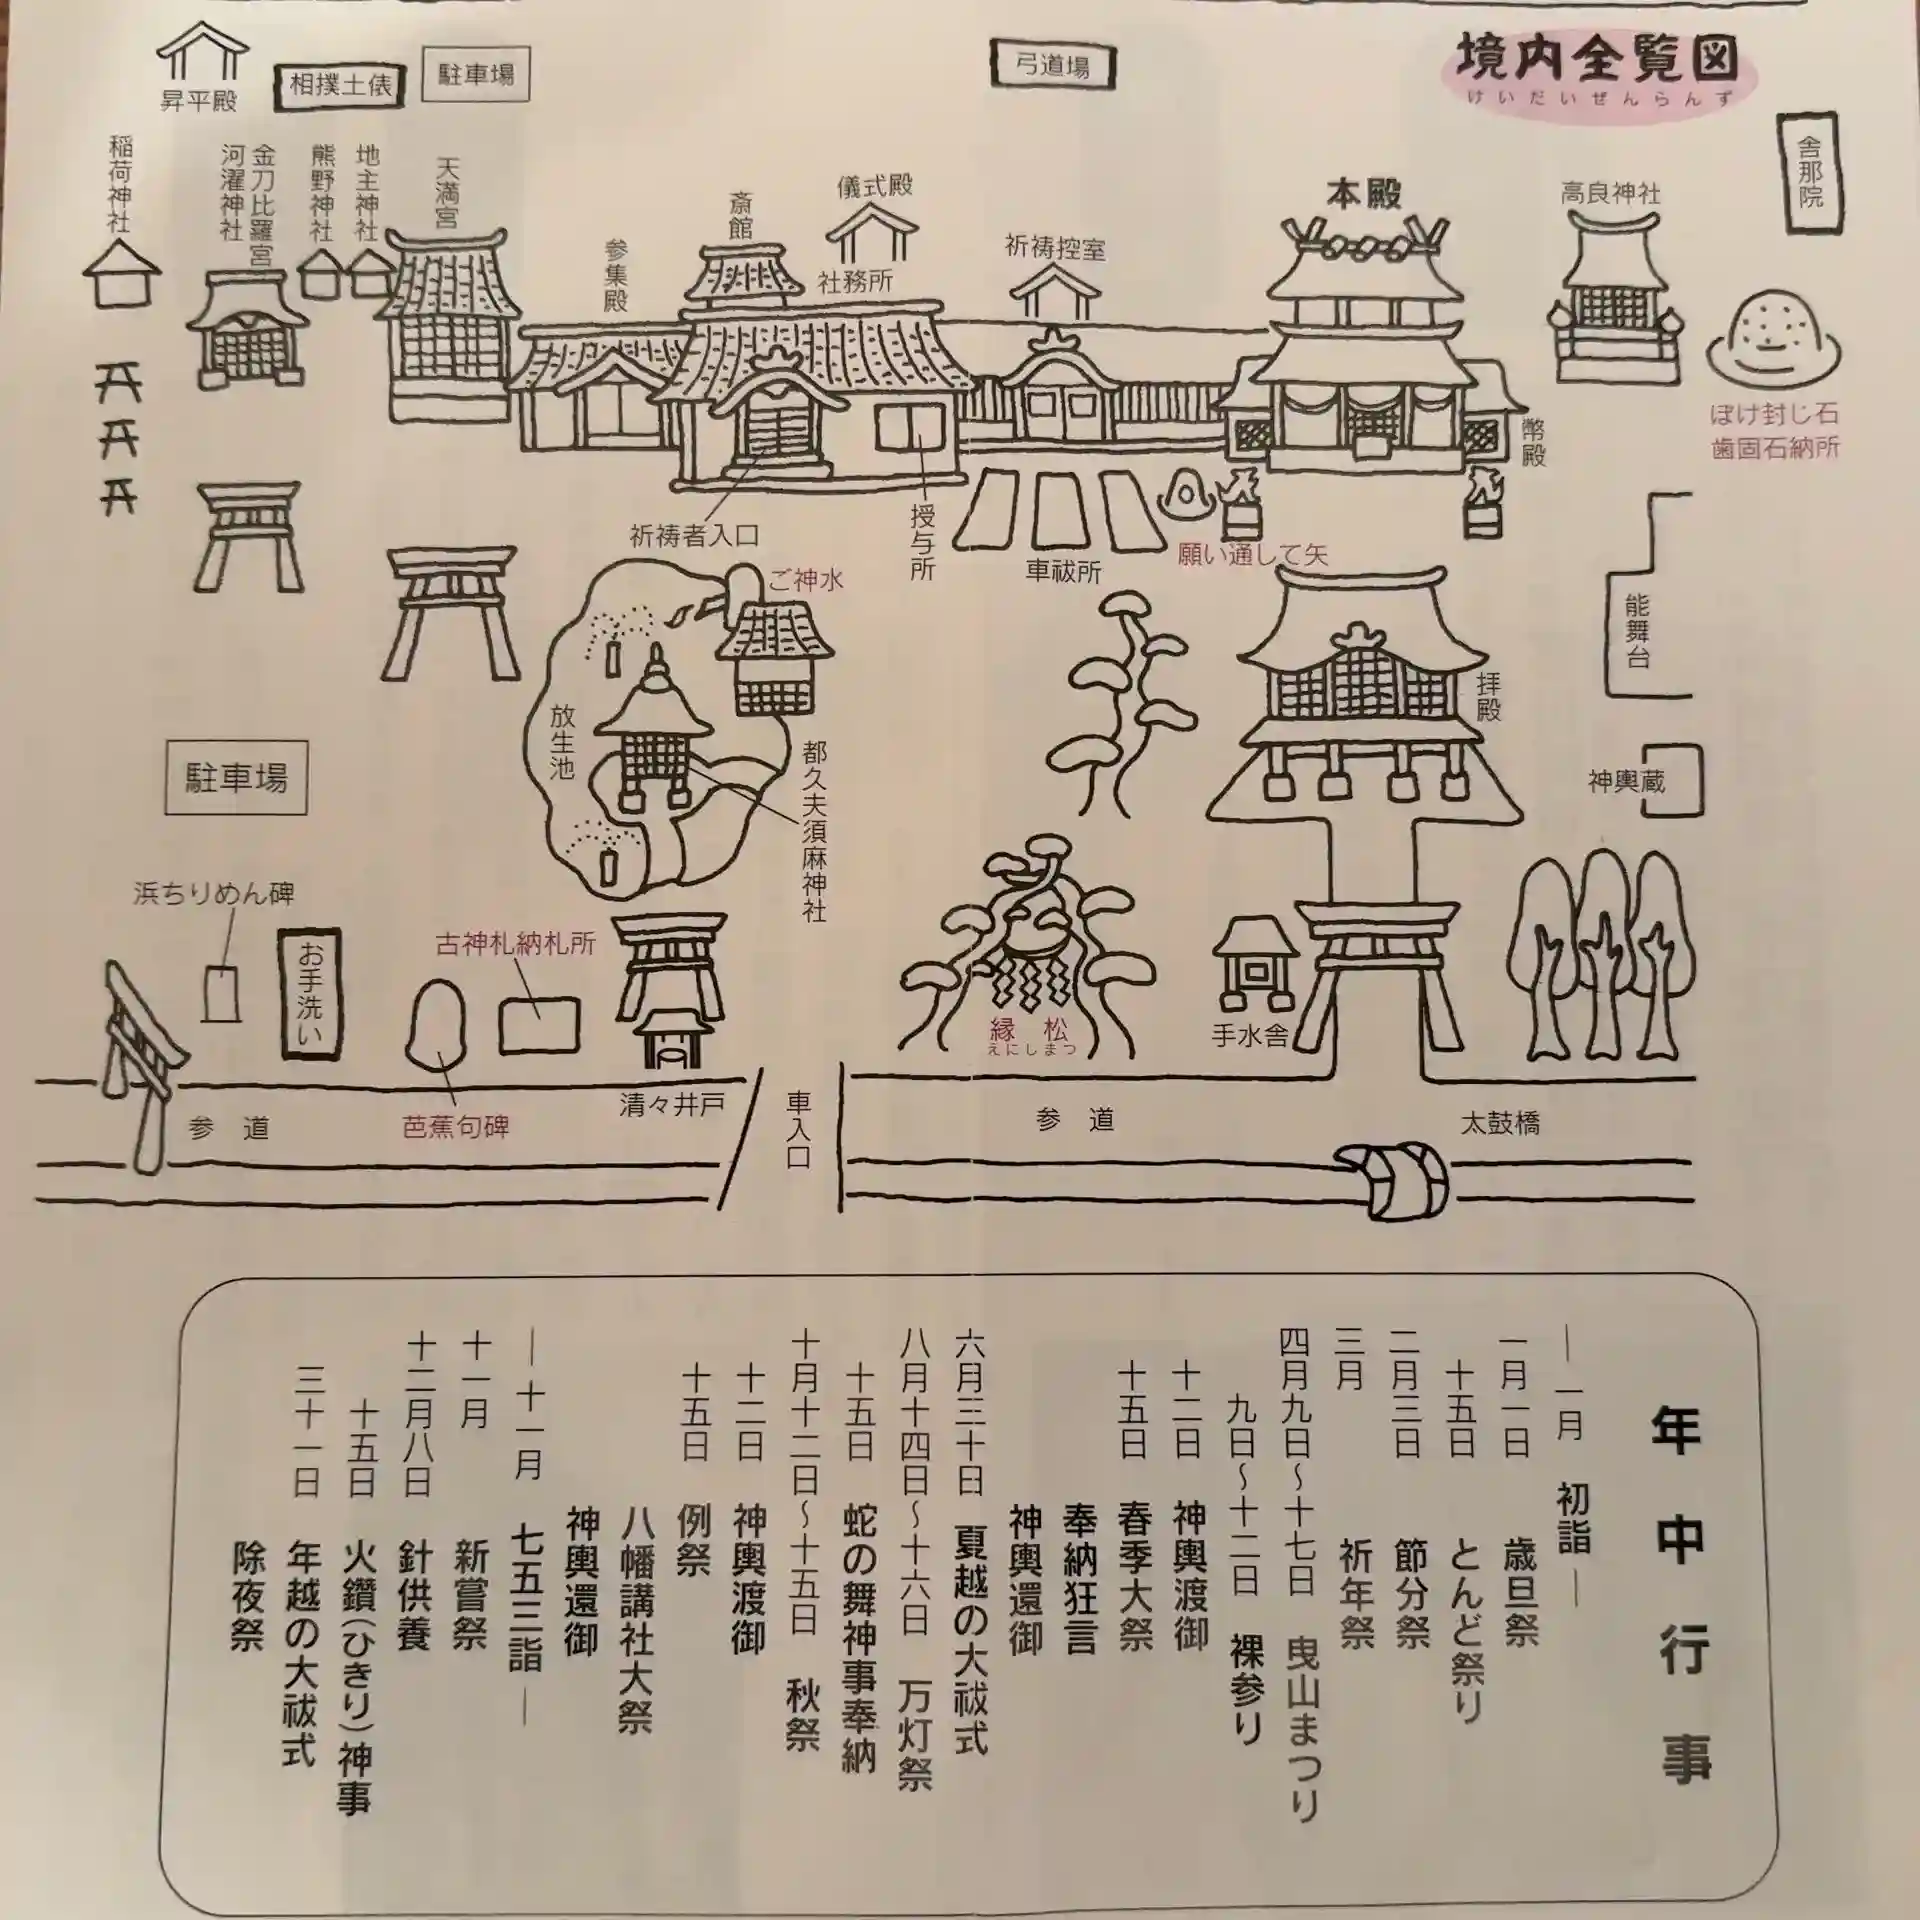 境内全覧図
けいだいぜんらんず
昇平殿
相撲土俵
駐車場
弓道場
舎那院
稲荷神社
金刀比羅宮
河濯神社
熊野神社
地主神社
天満宮
参集殿
斎館
儀式殿
社務所
祈祷控室
本殿
高良神社
ぼけ封じ石
歯固石納所
幣殿
祈祷者入口
授与所
車祓所
願い通して矢
ご神水
能舞台
拝殿
放生池
都久夫須麻神社
駐車場
神輿蔵
浜ちりめん碑
お手洗い
古神札納札所
縁 松
えにしまつ
手水舎
清々井戸
参 道
芭蕉句碑
車入口
参 道
太鼓橋
年中行事
―一月 初詣―
一月一日 歳旦祭
十五日 とんど祭り
二月三日 節分祭
三月 祈年祭
四月九日～十七日 曳山まつり
九日～十二日 裸参り
十二日 神輿渡御
十五日 春季大祭
奉納狂言
神輿還御
六月三十日 夏越の大祓式
八月十四日～十六日 万灯祭
十五日 蛇の舞神事奉納
十月十二日～十五日 秋祭
十二日 神輿渡御
十五日 例祭
八幡講社大祭
神輿還御
―十一月 七五三詣―
十一月 新嘗祭
十二月八日 針供養
十五日 火鑽(ひきり)神事
三十一日 年越の大祓式
除夜祭